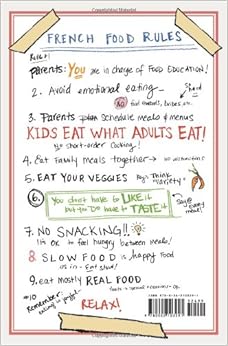 FRENCH FOOD RULES
Rule #1
Parents: YOU are in charge of FOOD EDUCATION!
2. Avoid emotional eating
NO food rewards, bribes, etc.
3. Parents schedule meals & menus
KIDS EAT WHAT ADULTS EAT!
No short-order cooking!
4. Eat family meals together → no distractions
5. EAT YOUR VEGGIES
Think "variety"
6. You don't have to LIKE it
but you DO have to TASTE it
7. NO SNACKING!!
It's OK to feel hungry between meals!
8. SLOW FOOD is happy food
as in - Eat slow!
9. eat mostly REAL FOOD
#10
Remember:
eating is joyful
RELAX!